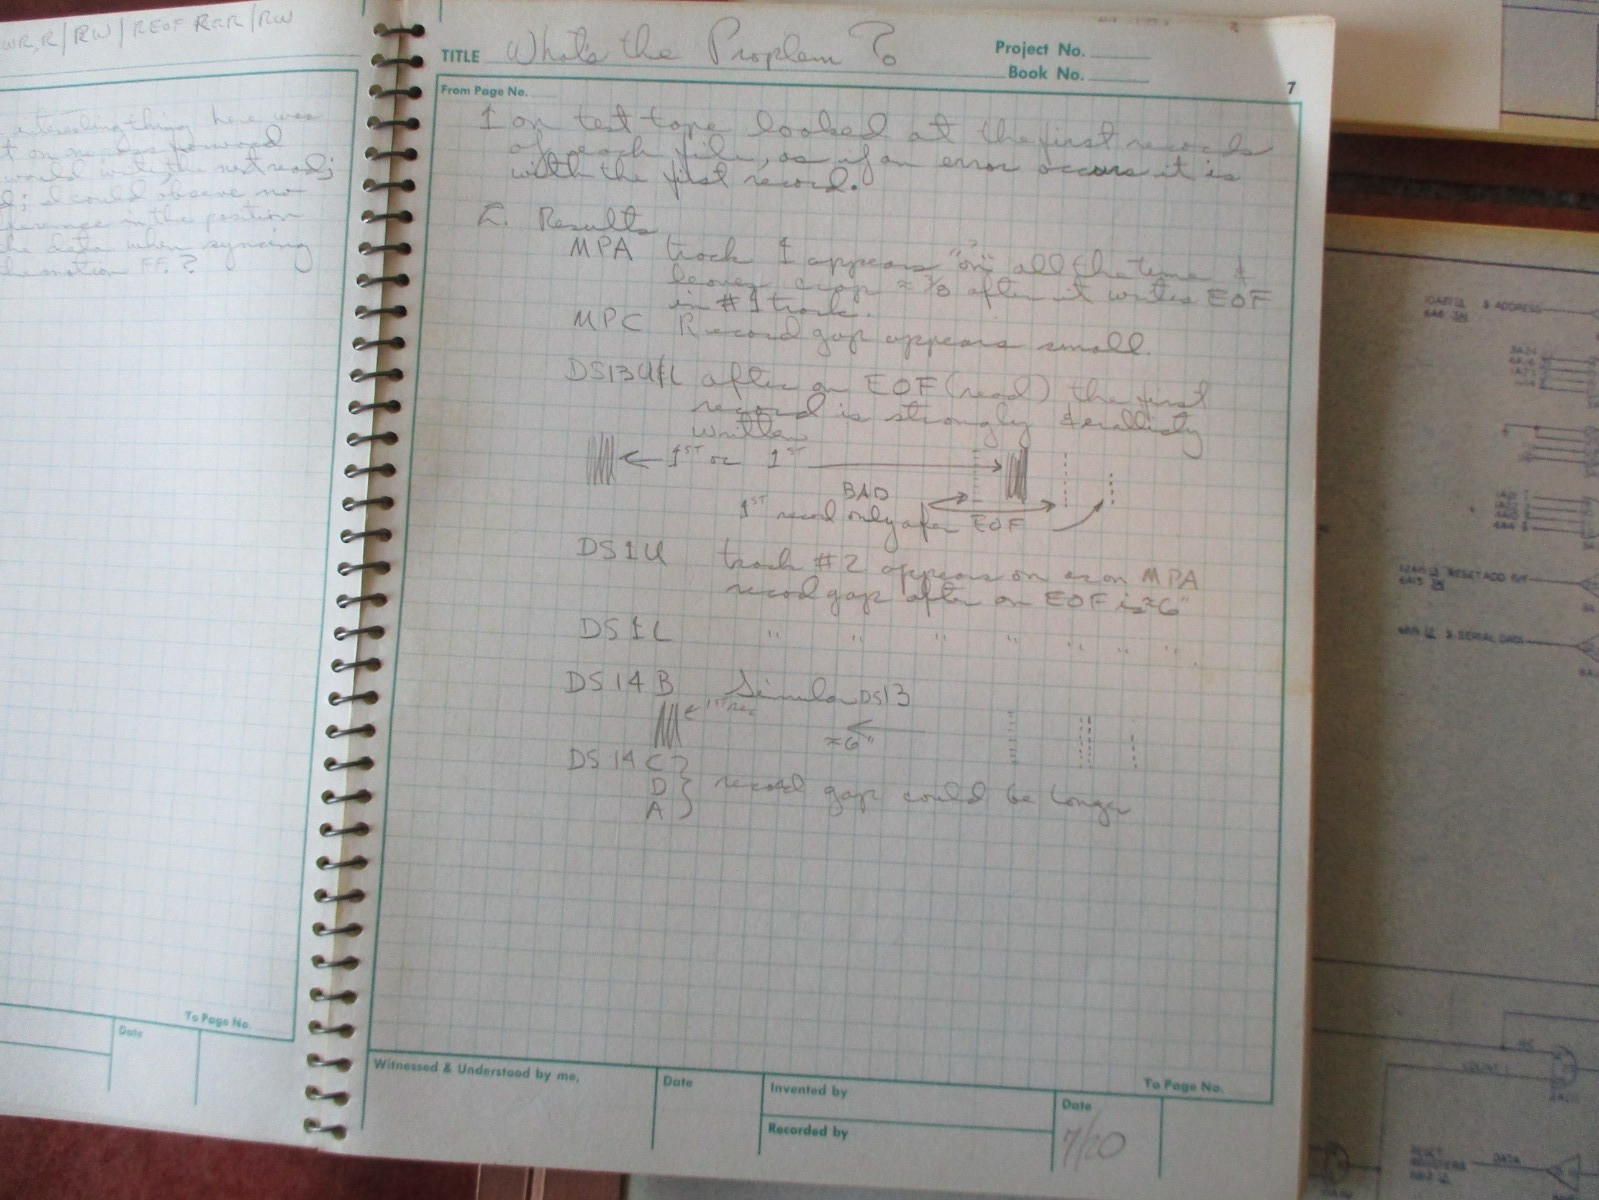 WR, R / RW / REOF RRR / RW
interesting thing here was
on forward
would write the next read;
I could observe no
difference in the position
the data when syncing
the motion FF. ?
To Page No.
Date
TITLE What's the Proplem ?
Project No.
Book No.
7
From Page No.
1 on test tape looked at the first records
of each file, as if an error occurs it is
with the first record.
2. Results
MPA track 1 appears "on" all the time &
leaves a gap ≈ 3/8 after it writes EOF
in #1 track.
MPC Record gap appears small.
DS13U&L after an EOF (read) the first
record is strongly & written
← 1ST or 1ST →
BAD
1ST record only after EOF
DS1U track #2 appears on as on MPA
record gap after an EOF is ≈6"
DS1L " " " " " " "
DS14B Similar DS13
← 1ST rec
≈6"
DS14C
D } record gap could be longer
A
Witnessed & Understood by me,
Date
Invented by
Recorded by
Date
7/20
To Page No.
S ADDRESS
RESET ADD
S. SERIAL DATA
COUNT 1
RESET
REGISTERS
DATA